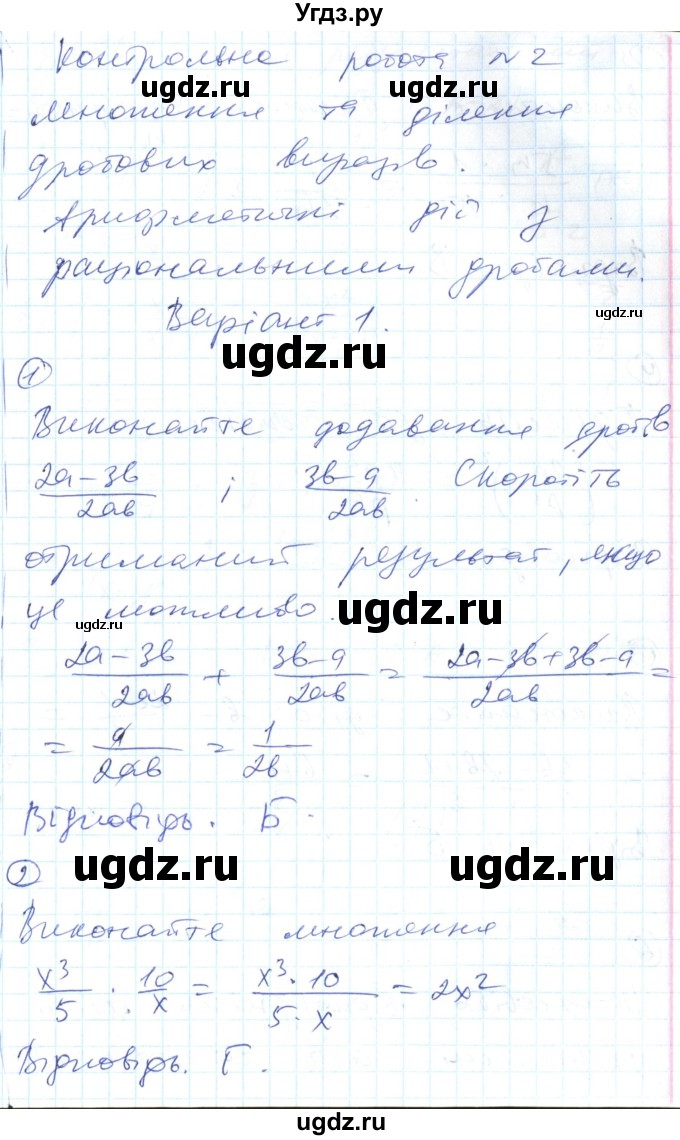 Угдз.ру
Контрольна робота №2
ugdz.ru ugdz.ru
множення та ділення
дробових виразів.
Арифметичні дії з
раціональними дробами.
ugdz.ru
Варіант 1.
ugdz.ru
1
Виконайте додавання дробів
(2a-3b)/(2ab) і (3b-a)/(2ab). Скоротіть
отриманий результат, якщо
це можливо.
ugdz.ru ugdz.ru
(2a-3b)/(2ab) + (3b-a)/(2ab) = (2a-3b+3b-a)/(2ab) =
= a/(2ab) = 1/(2b)
Відповідь. Б.
2
ugdz.ru ugdz.ru
Виконайте множення
x³/5 · 10/x = (x³·10)/(5·x) = 2x²
Відповідь. Г.
ugdz.ru